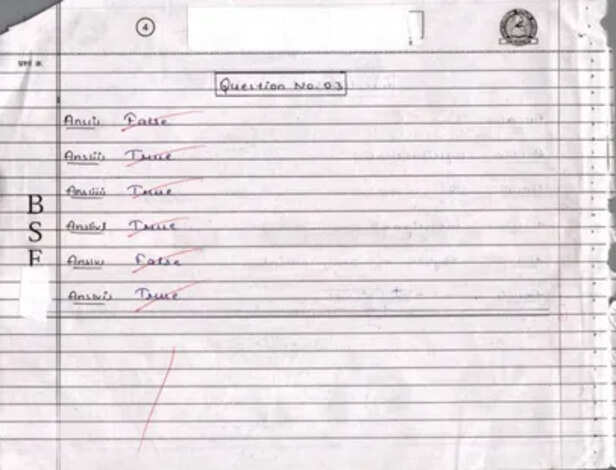 4
प्रश्न क्र.
Question No. 03
Ans(i) False
Ans(ii) True
Ans(iii) True
Ans(iv) True
Ans(v) False
Ans(vi) True
B
S
E